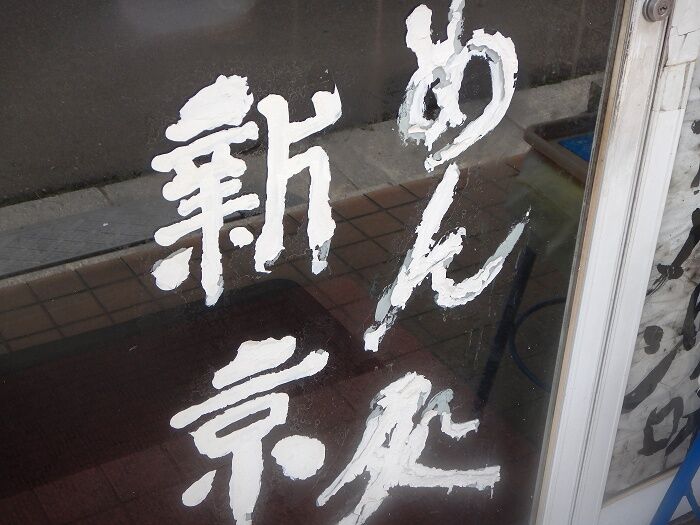 めん処
新京